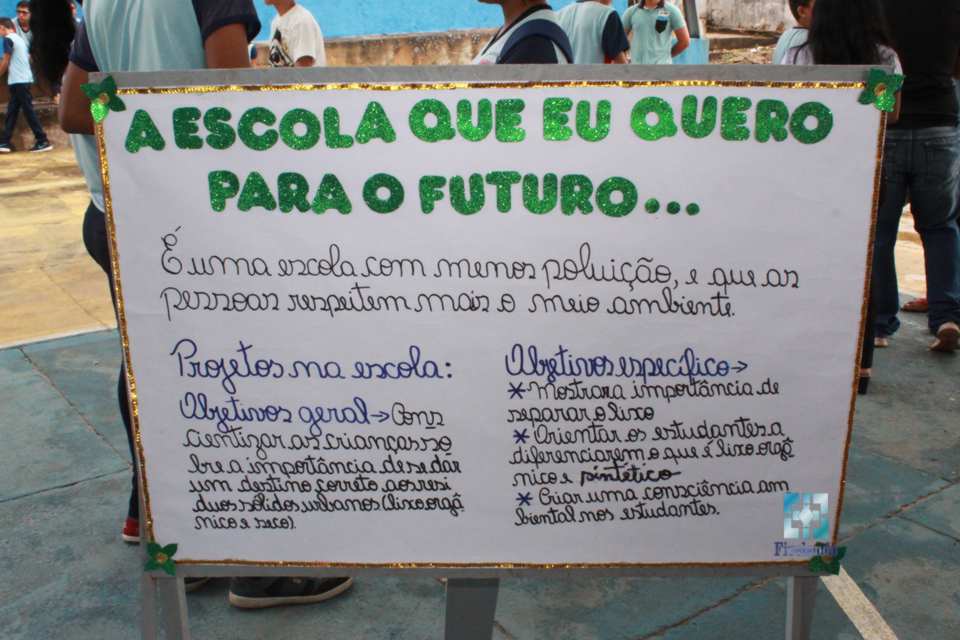 A ESCOLA QUE EU QUERO
PARA O FUTURO...
É uma escola com menos poluição, e que as
pessoas respeitem mais o meio ambiente.
Projetos na escola:
Objetivos geral→ Cons
cientizar as crianças so
bre a importância de se dar
um destino correto aos resi
duos sólidos urbanos (lixo orgâ
nico e seco).
Objetivos específico→
* Mostrar a importância de
separar o lixo
* Orientar os estudantes a
diferenciarem o que é lixo orgâ
nico e sintético
* Criar uma consciência am
biental nos estudantes.